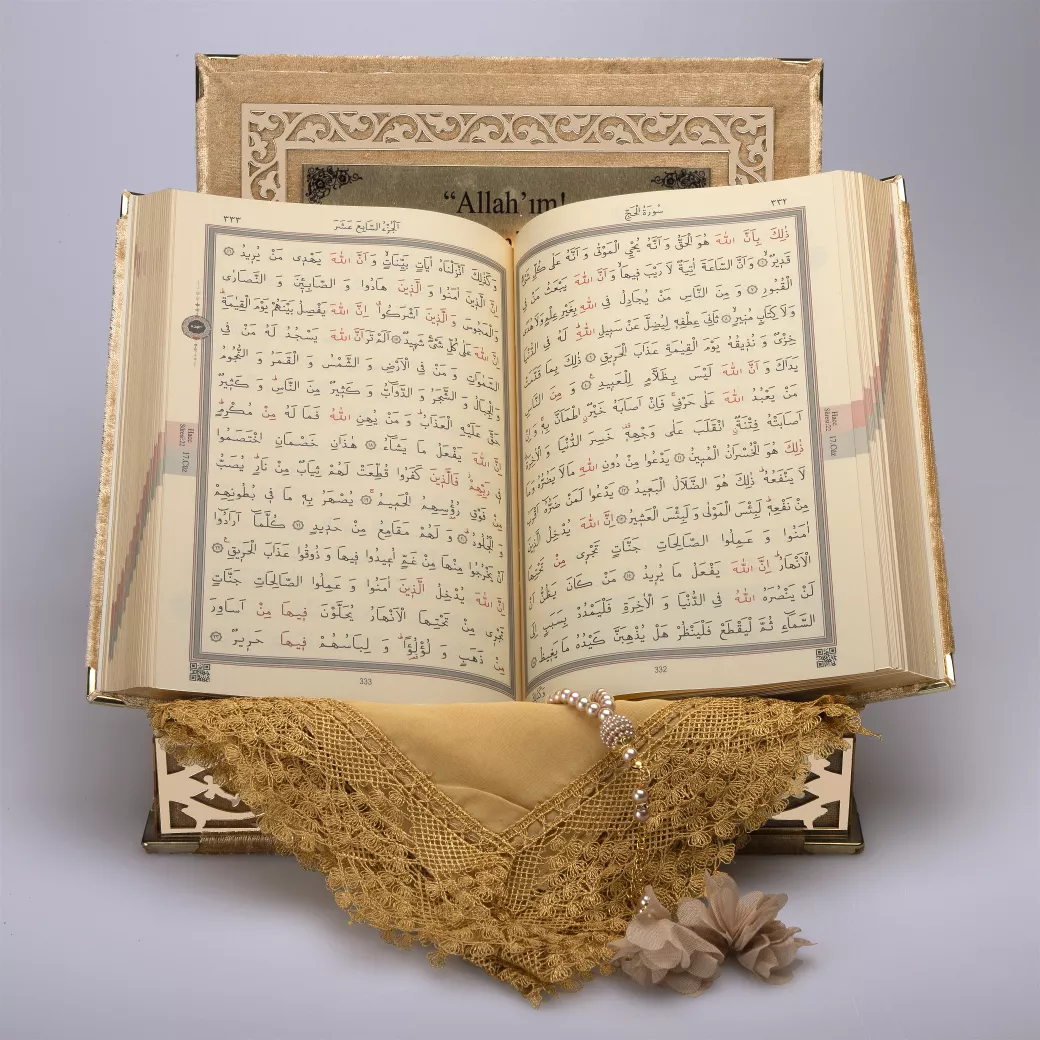 “Allah’ım!
٣٣٢
سُورَةُ الْحَجِّ
ذٰلِكَ بِاَنَّ اللّٰهَ هُوَ الْحَقُّ وَ اَنَّهُ يُحْيِ الْمَوْتٰى وَ اَنَّهُ عَلٰى كُلِّ شَيْءٍ
قَدِيرٌ ۝ وَ اَنَّ السَّاعَةَ اٰتِيَةٌ لَا رَيْبَ فِيهَا وَ اَنَّ اللّٰهَ يَبْعَثُ مَنْ فِي
الْقُبُورِ ۝ وَ مِنَ النَّاسِ مَنْ يُجَادِلُ فِي اللّٰهِ بِغَيْرِ عِلْمٍ وَلَا هُدًى
وَلَا كِتَابٍ مُنِيرٍ ۝ ثَانِيَ عِطْفِهِ لِيُضِلَّ عَنْ سَبِيلِ اللّٰهِ لَهُ فِي الدُّنْيَا
خِزْيٌ وَ نُذِيقُهُ يَوْمَ الْقِيٰمَةِ عَذَابَ الْحَرِيقِ ۝ ذٰلِكَ بِمَا قَدَّمَتْ
يَدَاكَ وَ اَنَّ اللّٰهَ لَيْسَ بِظَلَّامٍ لِلْعَبِيدِ ۝ وَ مِنَ النَّاسِ
مَنْ يَعْبُدُ اللّٰهَ عَلٰى حَرْفٍ فَاِنْ اَصَابَهُ خَيْرٌ اطْمَاَنَّ بِهِ وَ اِنْ
اَصَابَتْهُ فِتْنَةٌ انْقَلَبَ عَلٰى وَجْهِهِ خَسِرَ الدُّنْيَا وَ الْاٰخِرَةَ
ذٰلِكَ هُوَ الْخُسْرَانُ الْمُبِينُ ۝ يَدْعُوا مِنْ دُونِ اللّٰهِ مَا لَا يَضُرُّهُ وَمَا
لَا يَنْفَعُهُ ذٰلِكَ هُوَ الضَّلَالُ الْبَعِيدُ ۝ يَدْعُوا لَمَنْ ضَرُّهُ اَقْرَبُ
مِنْ نَفْعِهِ لَبِئْسَ الْمَوْلٰى وَ لَبِئْسَ الْعَشِيرُ ۝ اِنَّ اللّٰهَ يُدْخِلُ الَّذِينَ
اٰمَنُوا وَ عَمِلُوا الصَّالِحَاتِ جَنَّاتٍ تَجْرِي مِنْ تَحْتِهَا
الْاَنْهَارُ اِنَّ اللّٰهَ يَفْعَلُ مَا يُرِيدُ ۝ مَنْ كَانَ يَظُنُّ اَنْ
لَنْ يَنْصُرَهُ اللّٰهُ فِي الدُّنْيَا وَ الْاٰخِرَةِ فَلْيَمْدُدْ بِسَبَبٍ اِلَى
السَّمَاءِ ثُمَّ لْيَقْطَعْ فَلْيَنْظُرْ هَلْ يُذْهِبَنَّ كَيْدُهُ مَا يَغِيظُ ۝
332
Hacc
Sûresi:22 17.Cüz
٣٣٣
اَلْجُزْءُ السَّابِعَ عَشَرَ
وَ كَذٰلِكَ اَنْزَلْنَاهُ اٰيَاتٍ بَيِّنَاتٍ وَ اَنَّ اللّٰهَ يَهْدِي مَنْ يُرِيدُ ۝
اِنَّ الَّذِينَ اٰمَنُوا وَ الَّذِينَ هَادُوا وَ الصَّابِئِينَ وَ النَّصَارٰى
وَ الْمَجُوسَ وَ الَّذِينَ اَشْرَكُوا اِنَّ اللّٰهَ يَفْصِلُ بَيْنَهُمْ يَوْمَ الْقِيٰمَةِ
اِنَّ اللّٰهَ عَلٰى كُلِّ شَيْءٍ شَهِيدٌ ۝ اَلَمْ تَرَ اَنَّ اللّٰهَ يَسْجُدُ لَهُ مَنْ فِي
السَّمٰوَاتِ وَ مَنْ فِي الْاَرْضِ وَ الشَّمْسُ وَ الْقَمَرُ وَ النُّجُومُ
وَ الْجِبَالُ وَ الشَّجَرُ وَ الدَّوَابُّ وَ كَثِيرٌ مِنَ النَّاسِ وَ كَثِيرٌ
حَقَّ عَلَيْهِ الْعَذَابُ وَ مَنْ يُهِنِ اللّٰهُ فَمَا لَهُ مِنْ مُكْرِمٍ
اِنَّ اللّٰهَ يَفْعَلُ مَا يَشَاءُ ۝ هٰذَانِ خَصْمَانِ اخْتَصَمُوا
فِي رَبِّهِمْ فَالَّذِينَ كَفَرُوا قُطِّعَتْ لَهُمْ ثِيَابٌ مِنْ نَارٍ يُصَبُّ
مِنْ فَوْقِ رُؤُسِهِمُ الْحَمِيمُ ۝ يُصْهَرُ بِهِ مَا فِي بُطُونِهِمْ
وَ الْجُلُودُ ۝ وَ لَهُمْ مَقَامِعُ مِنْ حَدِيدٍ ۝ كُلَّمَا اَرَادُوا
اَنْ يَخْرُجُوا مِنْهَا مِنْ غَمٍّ اُعِيدُوا فِيهَا وَ ذُوقُوا عَذَابَ الْحَرِيقِ ۝
اِنَّ اللّٰهَ يُدْخِلُ الَّذِينَ اٰمَنُوا وَ عَمِلُوا الصَّالِحَاتِ جَنَّاتٍ
تَجْرِي مِنْ تَحْتِهَا الْاَنْهَارُ يُحَلَّوْنَ فِيهَا مِنْ اَسَاوِرَ
مِنْ ذَهَبٍ وَ لُؤْلُؤًا وَ لِبَاسُهُمْ فِيهَا حَرِيرٌ ۝
333
Hacc
Sûresi:22 17.Cüz